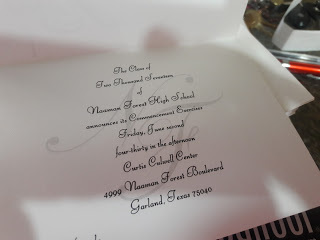 The Class of
Two Thousand Seventeen
of
Naaman Forest High School
announces its Commencement Exercises
Friday, June second
four-thirty in the afternoon
Curtis Culwell Center
4999 Naaman Forest Boulevard
Garland, Texas 75040